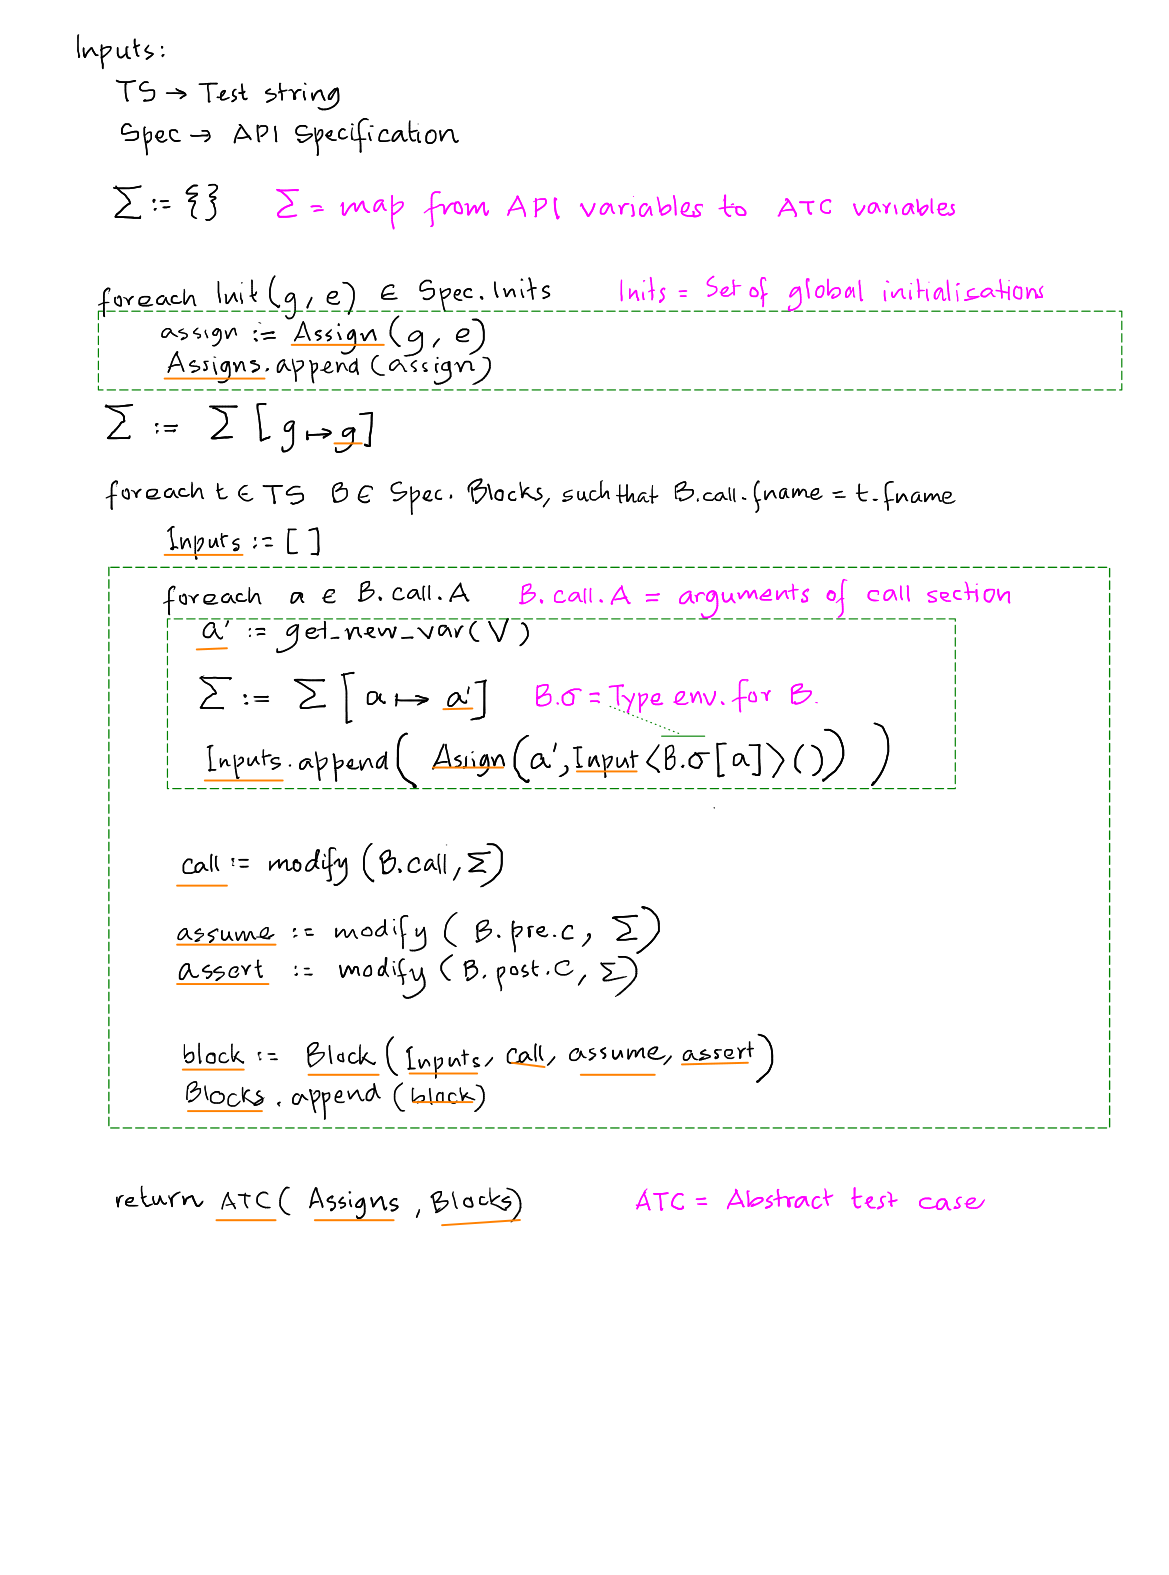 Inputs:
TS → Test string
Spec → API Specification
Σ := {} Σ = map from API variables to ATC variables
foreach Init(g, e) ∈ Spec.Inits Inits = Set of global initialisations
assign := Assign(g, e)
Assigns.append(assign)
Σ := Σ [g ↦ g]
foreach t ∈ TS B ∈ Spec. Blocks, such that B.call.fname = t.fname
Inputs := [ ]
foreach a ∈ B.call.A B.call.A = arguments of call section
a' := get_new_var(V)
Σ := Σ [a ↦ a'] B.σ = Type env. for B.
Inputs.append( Assign(a', Input<B.σ[a]>()) )
call := modify (B.call, Σ)
assume := modify ( B.pre.c, Σ)
assert := modify ( B.post.C, Σ)
block := Block (Inputs, call, assume, assert)
Blocks.append (block)
return ATC( Assigns, Blocks) ATC = Abstract test case